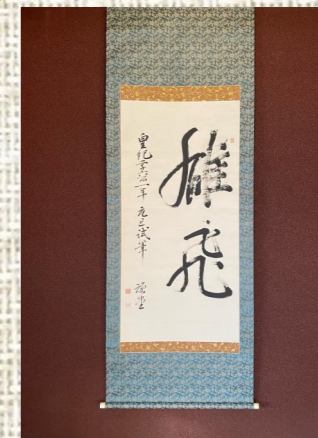 雄飛
皇紀 一年 元旦試筆
堂